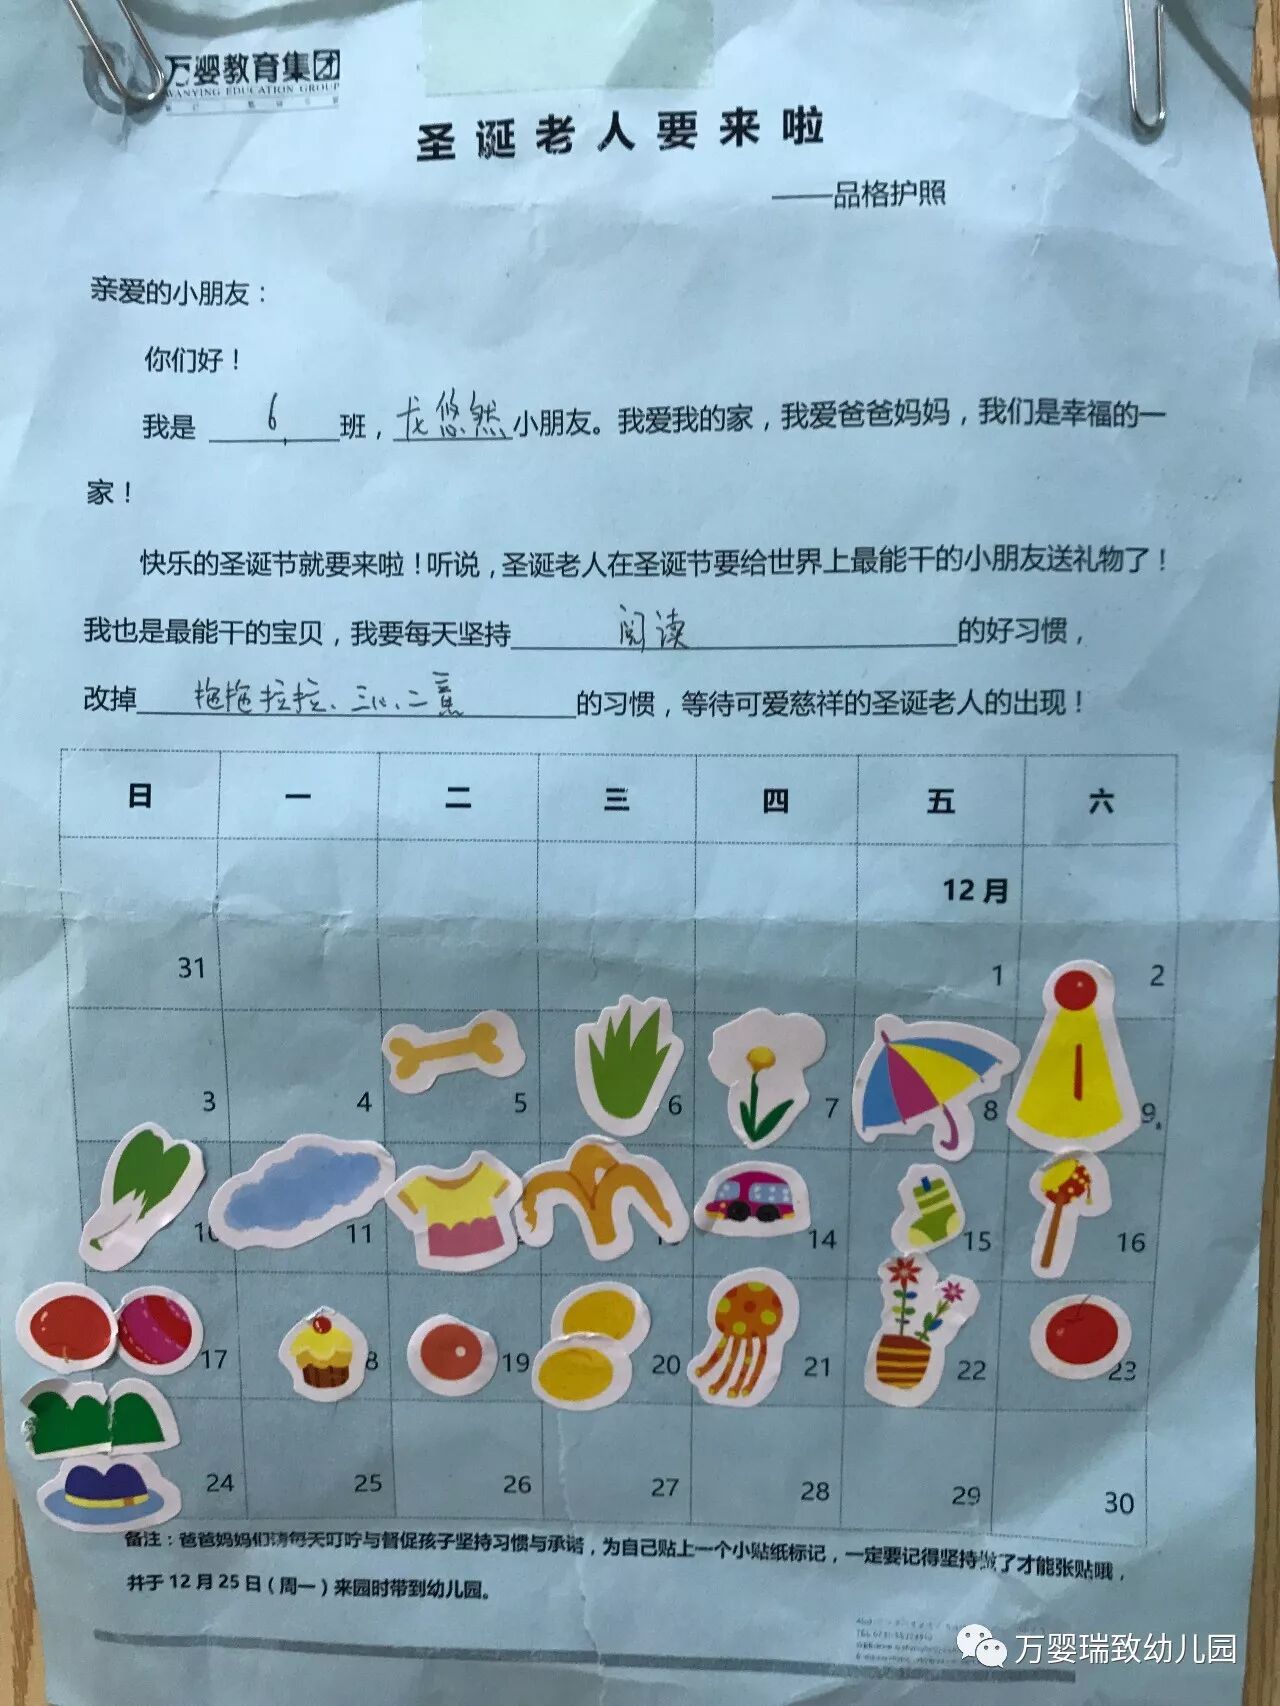 万婴教育集团
WANYING EDUCATION GROUP
圣诞老人要来啦
——品格护照
亲爱的小朋友：
你们好！
我是 6 班，龙悠然小朋友。我爱我的家，我爱爸爸妈妈，我们是幸福的一
家！
快乐的圣诞节就要来啦！听说，圣诞老人在圣诞节要给世界上最能干的小朋友送礼物了！
我也是最能干的宝贝，我要每天坚持 阅读 的好习惯，
改掉 拖拖拉拉、三心二意 的习惯，等待可爱慈祥的圣诞老人的出现！
日 一 二 三 四 五 六
12月
31 1 2
3 4 5 6 7 8 9
10 11 14 15 16
17 8 19 20 21 22 23
24 25 26 27 28 29 30
备注：爸爸妈妈们请每天叮咛与督促孩子坚持习惯与承诺，为自己贴上一个小贴纸标记，一定要记得坚持做了才能张贴哦，
并于12月25日（周一）来园时带到幼儿园。
万婴瑞致幼儿园